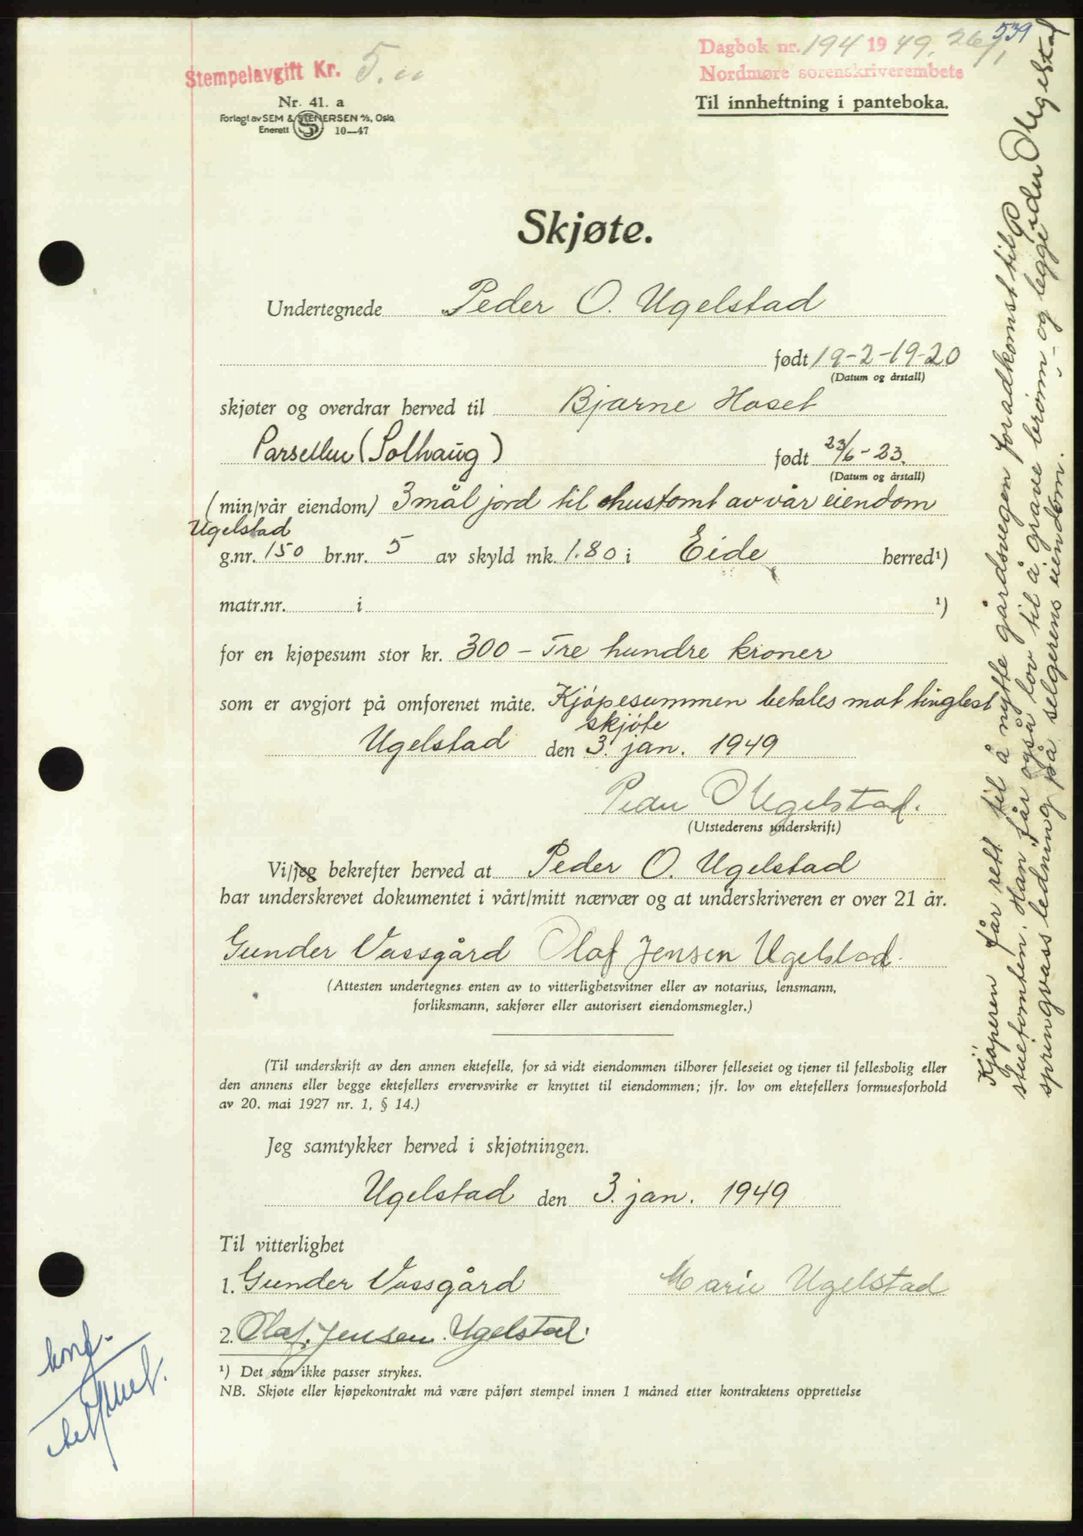 539
Stempelavgift Kr. 5.
Dagbok nr. 194 1949. 26/1
Nordmøre sorenskriverembete
Nr. 41. a
Forlagt av SEM & STENERSEN A/S, Oslo
Enerett 10—47
Til innheftning i panteboka.
Skjøte.
Undertegnede Peder O. Ugelstad
født 19-2-19-20
(Datum og årstall)
skjøter og overdrar herved til Bjarne Haset
Parsellen (Solhaug) født 23/6-23.
(Datum og årstall)
(min/vår eiendom) 3 mål jord til hustomt av vår eiendom
Ugelstad
g.nr. 150 br.nr. 5 av skyld mk. 1.80 i Eide herred¹)
matr.nr. i ¹)
for en kjøpesum stor kr. 300 - Tre hundre kroner
som er avgjort på omforenet måte. Kjøpesummen betales mot tinglest
skjøte
Ugelstad den 3. jan. 1949
Peder O Ugelstad.
(Utstederens underskrift)
Vi/jeg bekrefter herved at Peder O. Ugelstad
har underskrevet dokumentet i vårt/mitt nærvær og at underskriveren er over 21 år.
Gunder Vassgård Olaf Jensen Ugelstad.
(Attesten undertegnes enten av to vitterlighetsvitner eller av notarius, lensmann,
forliksmann, sakfører eller autorisert eiendomsmegler.)
(Til underskrift av den annen ektefelle, for så vidt eiendommen tilhører felleseiet og tjener til fellesbolig eller
den annens eller begge ektefellers ervervsvirke er knyttet til eiendommen; jfr. lov om ektefellers formuesforhold
av 20. mai 1927 nr. 1, § 14.)
Jeg samtykker herved i skjøtningen.
Ugelstad den 3. jan. 1949
Til vitterlighet
1. Gunder Vassgård Marie Ugelstad
2. Olaf. Jensen. Ugelstad.
¹) Det som ikke passer strykes.
NB. Skjøte eller kjøpekontrakt må være påført stempel innen 1 måned etter kontraktens opprettelse
Kjøperen får rett til å nytte gårdsvegen for adkomst til
stuetomten. Han får også lov til å grave brønn og legge
springvass ledning på selgerens eiendom.
Peder O Ugelstad
konf.